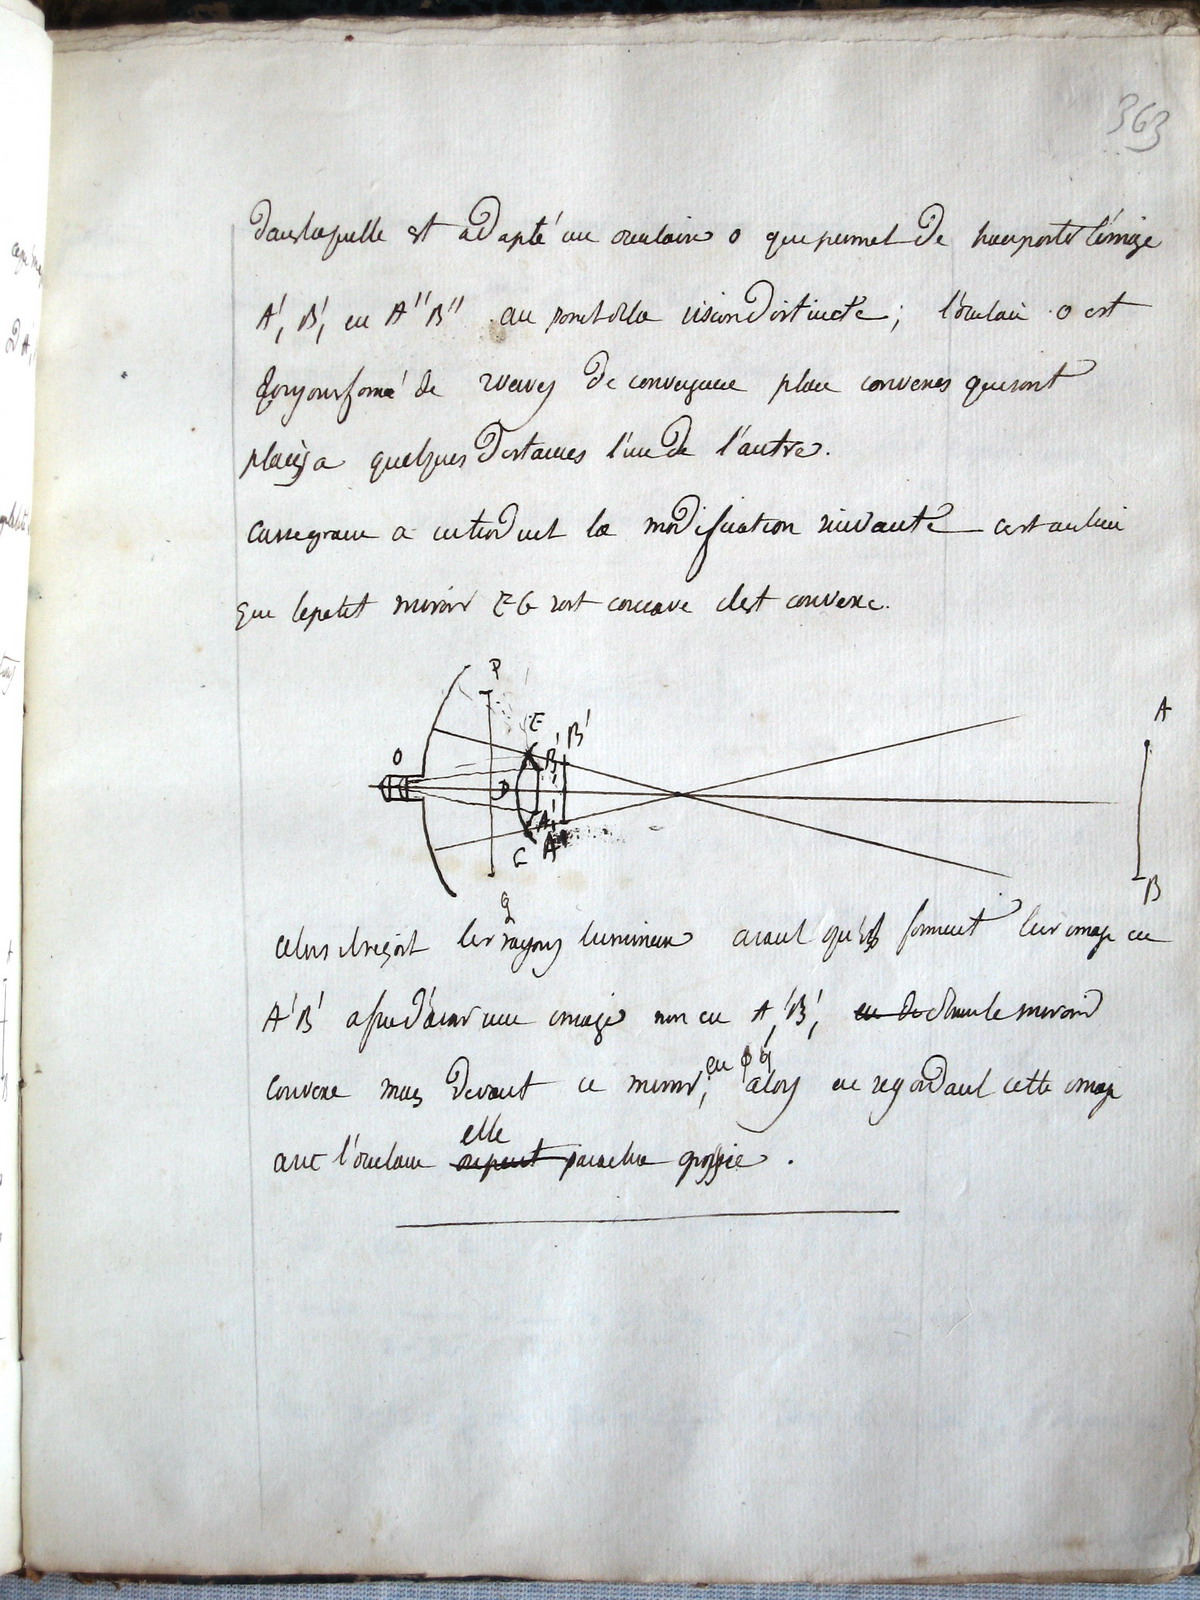 363
dans laquelle est adapté un oculaire o qui permet de transporter l'image
A', B', en A"B" au point de la vision distincte; l'oculaire o est
toujours formé de verres de convergence plan convexes qui sont
placés a quelques distances l'un de l'autre.
Cassegrain a introduit la modification suivante c'est au lieu
que le petit miroir EG soit concave il est convexe.
P
E
B'
A
O
B'
D
A'
G
A'
B
q
alors il reçoit les rayons lumineux avant qu'ils forment leur image en
A'B' afin d'avoir une image non en A,'B,' en de dans le miroir
convexe mais devant ce miroir, en p q alors en regardant cette image
elle
avec l'oculaire paraitra grossie.